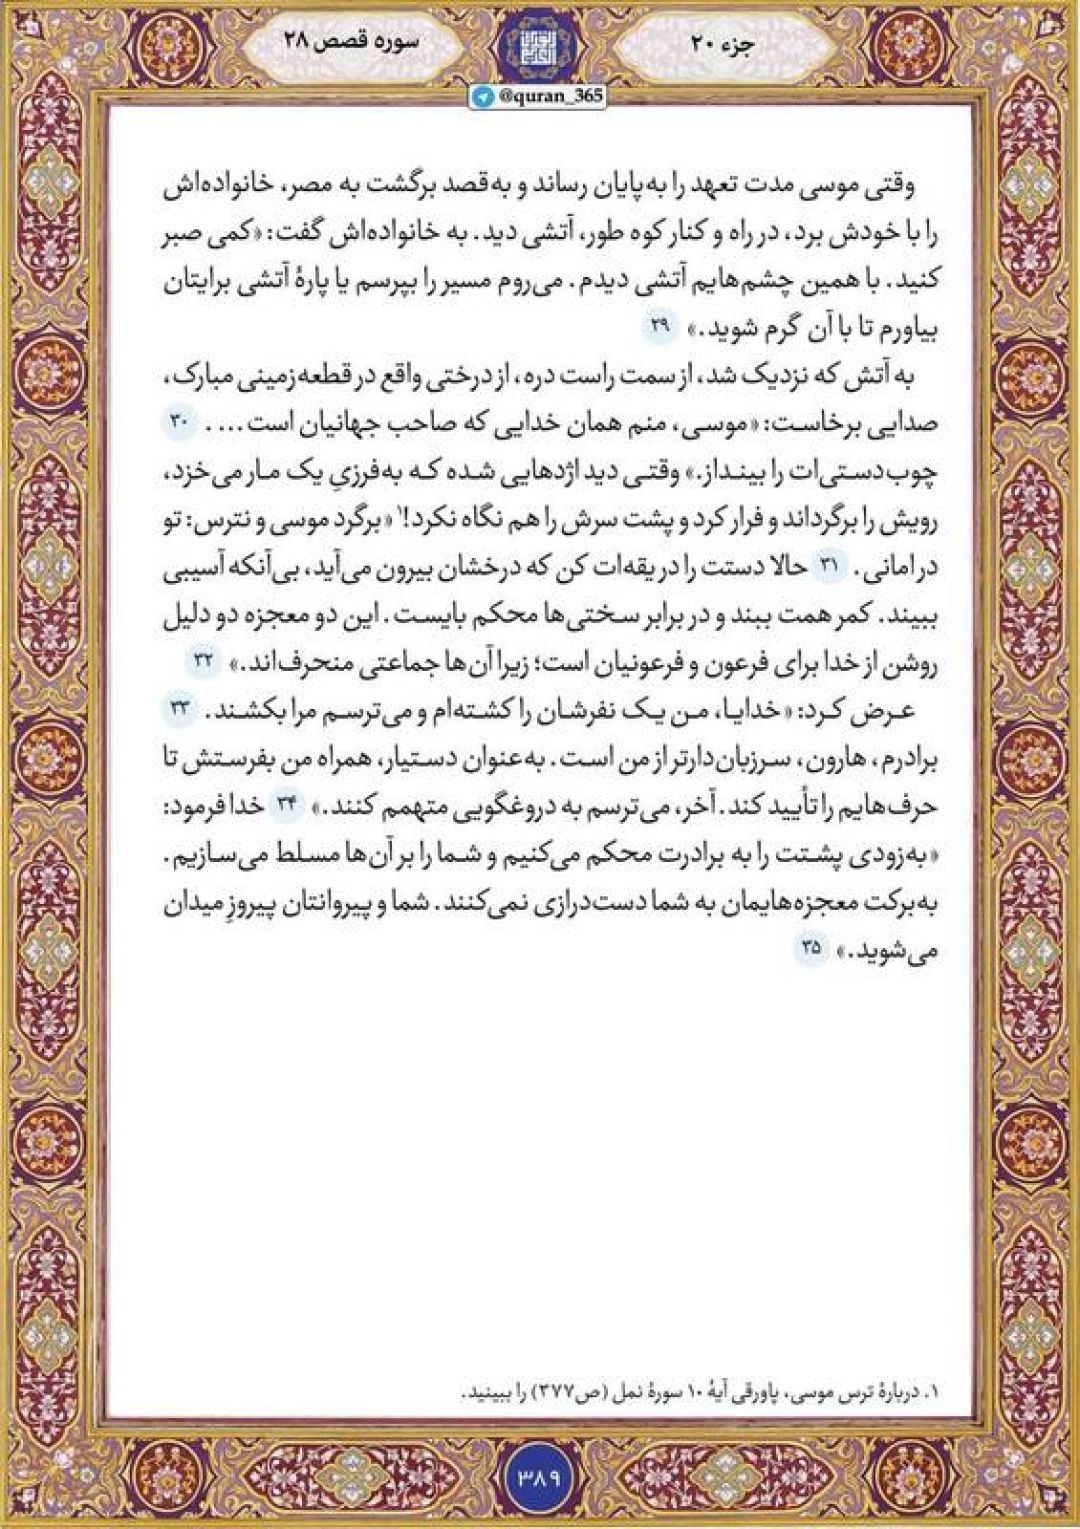 جزء ۲۰
سوره قصص ۲۸
@quran_365
وقتی موسی مدت تعهد را به‌پایان رساند و به‌قصد برگشت به مصر، خانواده‌اش
را با خودش برد، در راه و کنار کوه طور، آتشی دید. به خانواده‌اش گفت: «کمی صبر
کنید. با همین چشم‌هایم آتشی دیدم. می‌روم مسیر را بپرسم یا پارۀ آتشی برایتان
بیاورم تا با آن گرم شوید.» ۲۹
به آتش که نزدیک شد، از سمت راست دره، از درختی واقع در قطعه‌زمینی مبارک،
صدایی برخاست: «موسی، منم همان خدایی که صاحب جهانیان است... . ۳۰
چوب‌دستی‌ات را بینداز.» وقتی دید اژدهایی شده که به‌فرزیِ یک مار می‌خزد،
رویش را برگرداند و فرار کرد و پشت سرش را هم نگاه نکرد!۱ «برگرد موسی و نترس: تو
در امانی. ۳۱ حالا دستت را در یقه‌ات کن که درخشان بیرون می‌آید، بی‌آنکه آسیبی
ببیند. کمر همت ببند و در برابر سختی‌ها محکم بایست. این دو معجزه دو دلیل
روشن از خدا برای فرعون و فرعونیان است؛ زیرا آن‌ها جماعتی منحرف‌اند.» ۳۲
عرض کرد: «خدایا، من یک نفرشان را کشته‌ام و می‌ترسم مرا بکشند. ۳۳
برادرم، هارون، سرزبان‌دارتر از من است. به‌عنوان دستیار، همراه من بفرستش تا
حرف‌هایم را تأیید کند. آخر، می‌ترسم به دروغگویی متهمم کنند.» ۳۴ خدا فرمود:
«به‌زودی پشتت را به برادرت محکم می‌کنیم و شما را بر آن‌ها مسلط می‌سازیم.
به‌برکت معجزه‌هایمان به شما دست‌درازی نمی‌کنند. شما و پیروانتان پیروزِ میدان
می‌شوید.» ۳۵
۱. دربارۀ ترس موسی، پاورقی آیۀ ۱۰ سورۀ نمل (ص۳۷۷) را ببینید.
۳۸۹